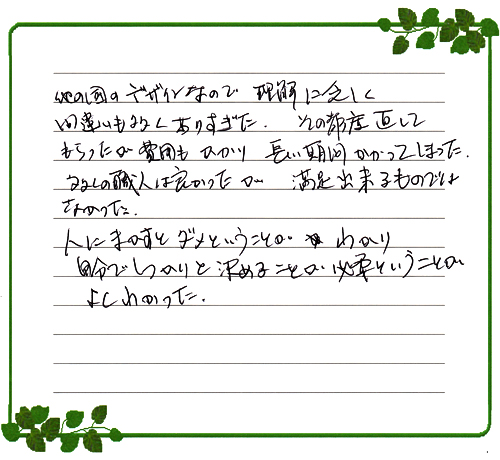 他の国のデザインなので 理解に乏しく
間違いも多くありすぎた. その都度直して
もらったが費用もかかり 長い期間かかってしまった.
の職人は良かったが 満足出来るものでは
なかった.
人にまかすとダメということが わかり
自分でしっかりと決めることが必要ということが
よくわかった.